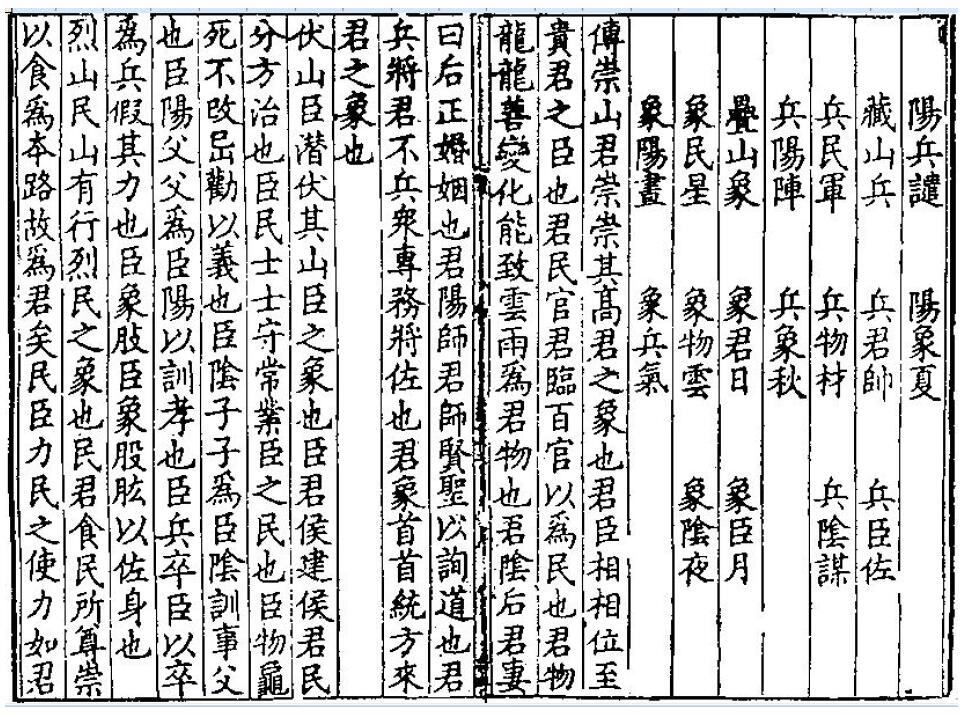 陽兵譴　陽象夏
藏山兵　兵君帥　兵臣佐
兵民軍　兵物材　兵陰謀
兵陽陣　兵象秋
疊山象　象君日　象臣月
象民星　象物雲　象陰夜
象陽晝　象兵氣
傳崇山君崇崇其髙君之象也君臣相相位至
貴君之臣也君民官君臨百官以爲民也君物
龍龍善變化能致雲雨爲君物也君陰后君妻
曰后正婚姻也君陽師君師賢聖以詢道也君
兵將君不兵衆專務將佐也君象首首統方來
君之象也
伏山臣潛伏其山臣之象也臣君侯建侯君民
分方治也臣民士士守常業臣之民也臣物龜
死不改勸以義也臣陰子子爲臣陰訓事父
也臣陽父父爲臣陽以訓孝也臣兵卒臣以卒
爲兵假其力也臣象肢臣象股肱以佐身也
烈山民山有行烈民之象也民君食民所尊崇
以食爲本路故爲君矣民臣力民之使力如君